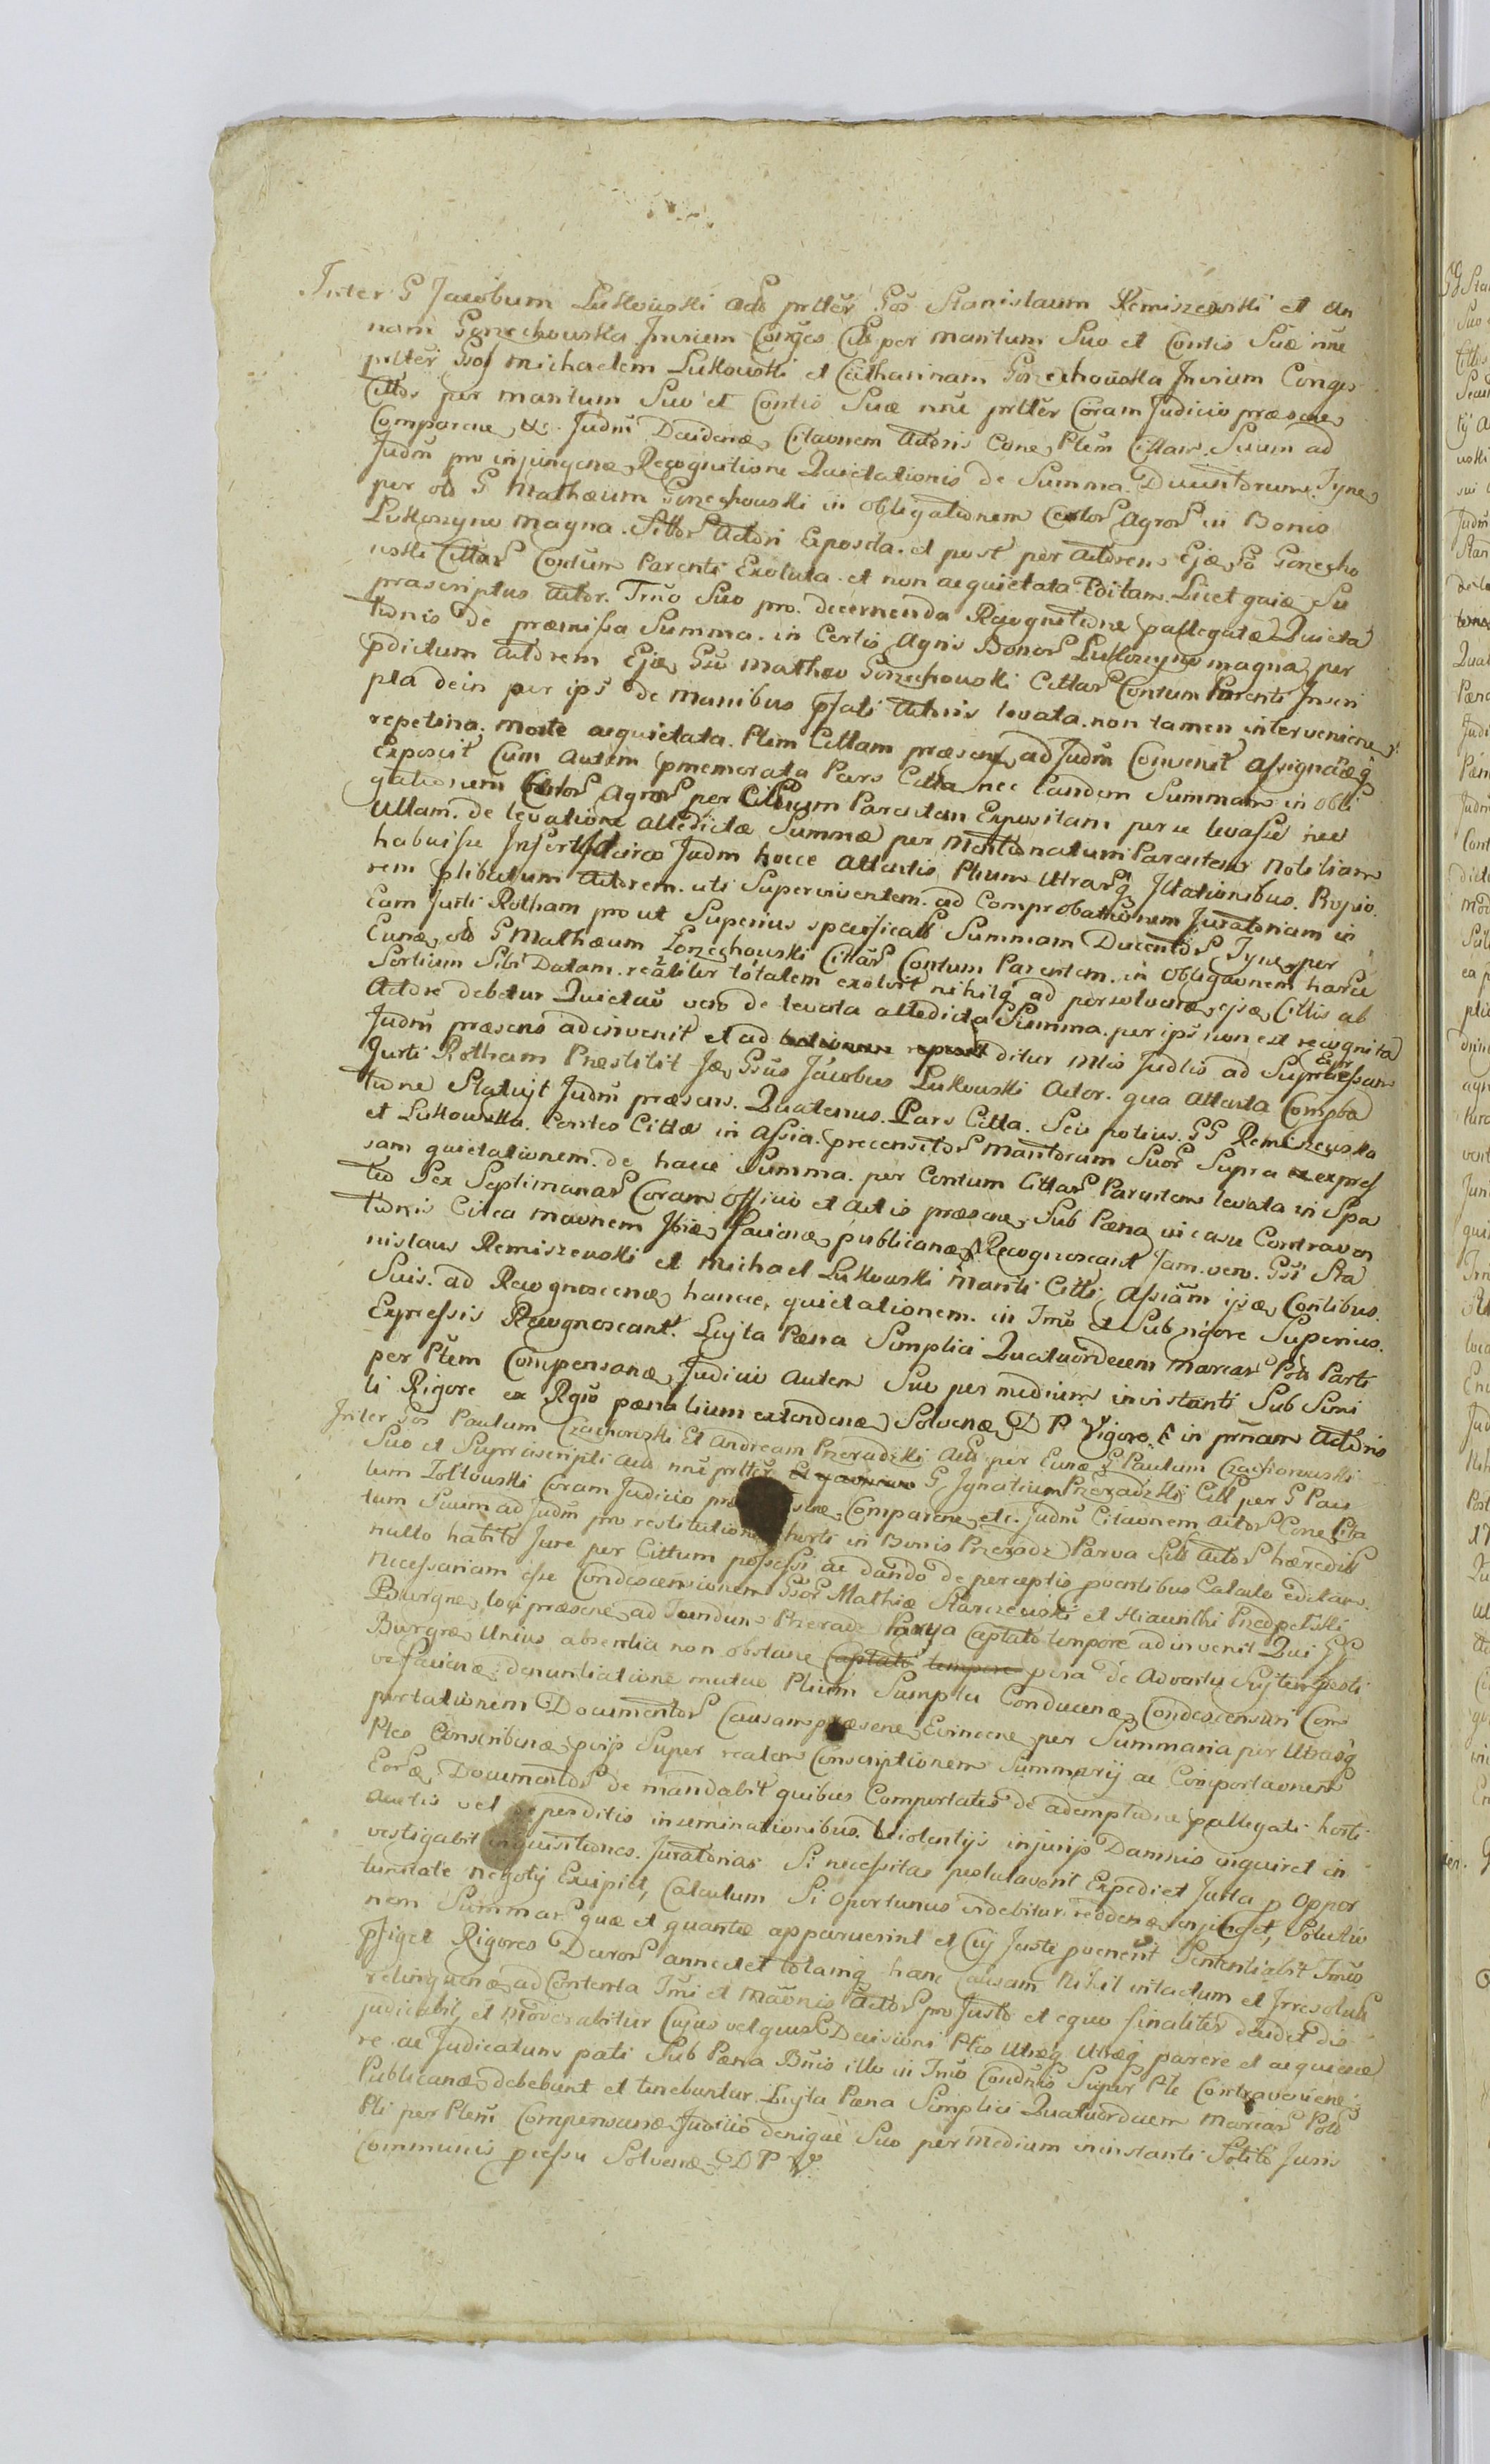 Inter G Jacobum Lukowski Act prtter Gos Stanislaum Remiszewski et An
nam Gorzechowska Invicem Conges Citt per maritum Suo et Contis Suæ nne
prtter Gos Michaelem Lukowski et Catharinam Gorzechowska Invicem Conges
Cittos per maritum Suo et Contis Suæ nne prtter Coram Judicio præsene
Comparene, etc. Judm Decidenæ, Citaonem Actoris Cone, Ptem Cittam. Suum ad
Judm pro injungenæ, Recognitione Quietationis de Summa. Ducentorum Tyne,
per olo G Mathæum Gorzechowski in Obligationem Certor Agror in Bonis
Lukoszyno magna. Sittor Actori Exposita. et post per Actorem Ejæ, Go Gorzecho
wski Cittar Contum Parenti Exoluta. et non acquietata Editam. Licet quiæ Su
prascriptus Actor. Tmo Suo pro. decernenda Recognitione pallegatæ Quieta
tionis de præmissa Summa. in Certis Agris Bonor Lukoszyno magna, per
pdictum Actorem Ejæ, Gso Matheo Gorzechowski Cittar Contum Parenti Inscri
pta dein per ips de Manibus pfati Actoris levata. non tamen interveniene,
repetina. Morte acquietata. Ptem Cittam præsene, ad Judm Convenit assignoæq
Exposcit Cum Autem pmemorata Pars Citta nec Eandem Summam in Obli
gationem Certor Agror per Cittum Parentem Expositam per se levasse nec
Ullam. de levatione attedictæ Summæ per Mentionatum Parentem Notitiam
habuisse Insert Ideirco Judm hocce Attentis Ptium Utrarq Illationibus. Propio
rem plibatum Actorem. uti Superviventem. ad Comprobationem Juratoriam in
Eam Jurti Rotham pro ut Superius specificatt Summam Ducentor Tyne, per
Eunæ, olo G Mathæum Gorzechowski Cittar Contum Parentem. in Obligaonem harce
Sortium Sibi Datam. realiter totalem exolvit nihilq ad persolvenæ, ejsæ, Cittis ab
Actore debetur Quietao vero de levata attedicta Summa. per ips non est recognita
Judm præsens adinvenit et ad ditur Mlis Judlis ad Supra Expressam
Jurti Rotham Præstitit Jæ, Gsus Jacobus Lukowski Actor. qua Attenta Comproba
tione Statuit Judm præsens. Quatenus. Pars Citta. Seu potius. GG Remiszewska
et Lukowska. Contes Cittæ in Assia. precensitor Maritorum Suor Supra expres
sam quietationem. de hacce Summa. per Contum Cittar Parentem levata in Spa
tio Sex Septimanar Coram Officio et Actis præsene, Sub Pæna in casu Contraven
tionis Citca maonem Ibiæ, facienæ, publicanæ, Recognoscant Jam. vero. Gsi Sta
nislaus Remiszewski et Michael Lukowski Mariti Citti, Assiam ijsæ, Contibus
Suis. ad Recognoscenæ, hancce, quietationem. in Tmo et Sub rigore Superius.
Expressis Recognoscant. Lujta Pæna Simplici Quatuordecem Marcar Polo Parti
per Ptem Compensanæ, Judicio Autem Suo per medium in instanti Sub Simi
li Rigore ex Regto pænalium extendenæ, Solvenæ, D P Vigore. E in prnam Actoris
Inter Gos Paulum Czachorowski Et Andream Przeradzki Act per Eunæ, G Paulum Czachorowski
Suo et Suprascripti Act nne prtter G Ignatium Przeradzki Citt per G Pau
lum Zoltowski Coram Judicio præsene, Comparene, etc. Judm Citaonem Actor Cone, Citta
tum Suum ad Judm pro restitutione horti in Bonis Przeradz Parva Sitt Actor hæredibs
nullo habito Jure per Cittum possessi ac dando de perceptis pventibus Calculo editam.
Necessariam esse Condescensionem Gsor Mathiæ Starczewski et Hiacinthi Przedpelski
Bourgne, loci præsene, ad Fundum Przeradz Parva Captato tempore adinvenit Qui GG
Burgræ, Unius absentia non obstane Captato tempore pvia de Adventu Sujtempesti
ve facienæ, denuntiatione mutuo Ptium Sumptu Conducenæ, Condescensuri Com
portationem Documentor Causam præsene, Evincene, per Summaria per Utrasq
Ptes Conscribenæ, pvijs Super realem Conscriptionem Summarij ac Comportaonem
Eorsæ, Documentor de mandabit quibus Comportatis de ademptione pallegati horti
auctis vel deperditis inseminationibus. Violentijs injurijs Damnis inquiret in
vestigabit inquisitiones. Juratorias Si necessitas postulaverit Expediet Juxta p Oppor
tunitate negotij Excipiet, Calculum Si Oportunus videbitur. reddenæ, injunget, Solutio
nem Summar quæ et quantæ apparuerint et Cuj Juste pvenerit Sententiabit Tmos
pfiget Rigores Duror annectet totamq hanc Causam Nihil intactum et Irresolutt
relinquenæ, ad Contenta Tmi et Maonis Actor pro Justo et equo finaliter decidet di
judicabit, et moderabitur Cujus vel quor Decisioni Ptes Utræq Utræq parere et acquiesce
re ac Judicatum pati Sub Pæna Bnis illo in Tmo Condnis Super Pte Contravenienæ
Publicanæ, debebunt et tenebuntur Lujta Pæna Simplici Quatuordecem Marcar Polo
Pti per Ptem Compensanæ, Judicio denique Suo per Medium in instanti Solito Juris
Communis pcessu Solvenæ, D P V